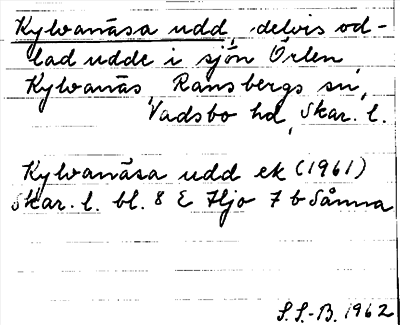 Kylvanäsa udd, delvis od-
lad udde i sjön Örlen,
Kylvanäs, Ransbergs sn,
Vadsbo hd, Skar. l.
Kylvanäsa udd ek (1961)
Skar. l. bl. 8 E Hjo 7 b Sånna
S.S.-B. 1962